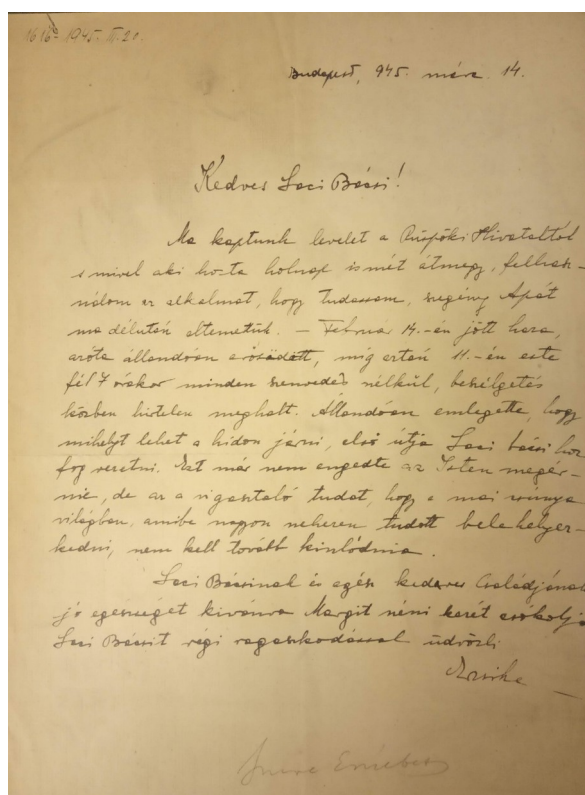 1616-1945. III. 20.
Budapest, 945. márc. 14.
Kedves Laci Bácsi!
Ma kaptunk levelet a Püspöki Hivataltól
s mivel aki hozta holnap ismét átmegy, felhasz-
nálom az alkalmat, hogy tudassam, szegény Apát
ma délután eltemettük. – Február 14.-én jött haza,
azóta állandóan erősödött, míg aztán 11.-én este
fél 7 órakor minden szenvedés nélkül, beszélgetés
közben hirtelen meghalt. Állandóan emlegette, hogy
mihelyt lehet a hidon járni, első útja Laci bácsihoz
fog vezetni. Ezt már nem engedte az Isten megér-
nie, de az a vigasztaló tudat, hogy a mai
világban, amibe nagyon nehezen tudott belehelyez-
kedni, nem kell tovább kinlódnia.
Laci Bácsinak és egész kedves Családjának
jó egészséget kivánva Margit néni kezét csókolja
Laci Bácsit régi ragaszkodással üdvözli
Erzsike
Erzsébet